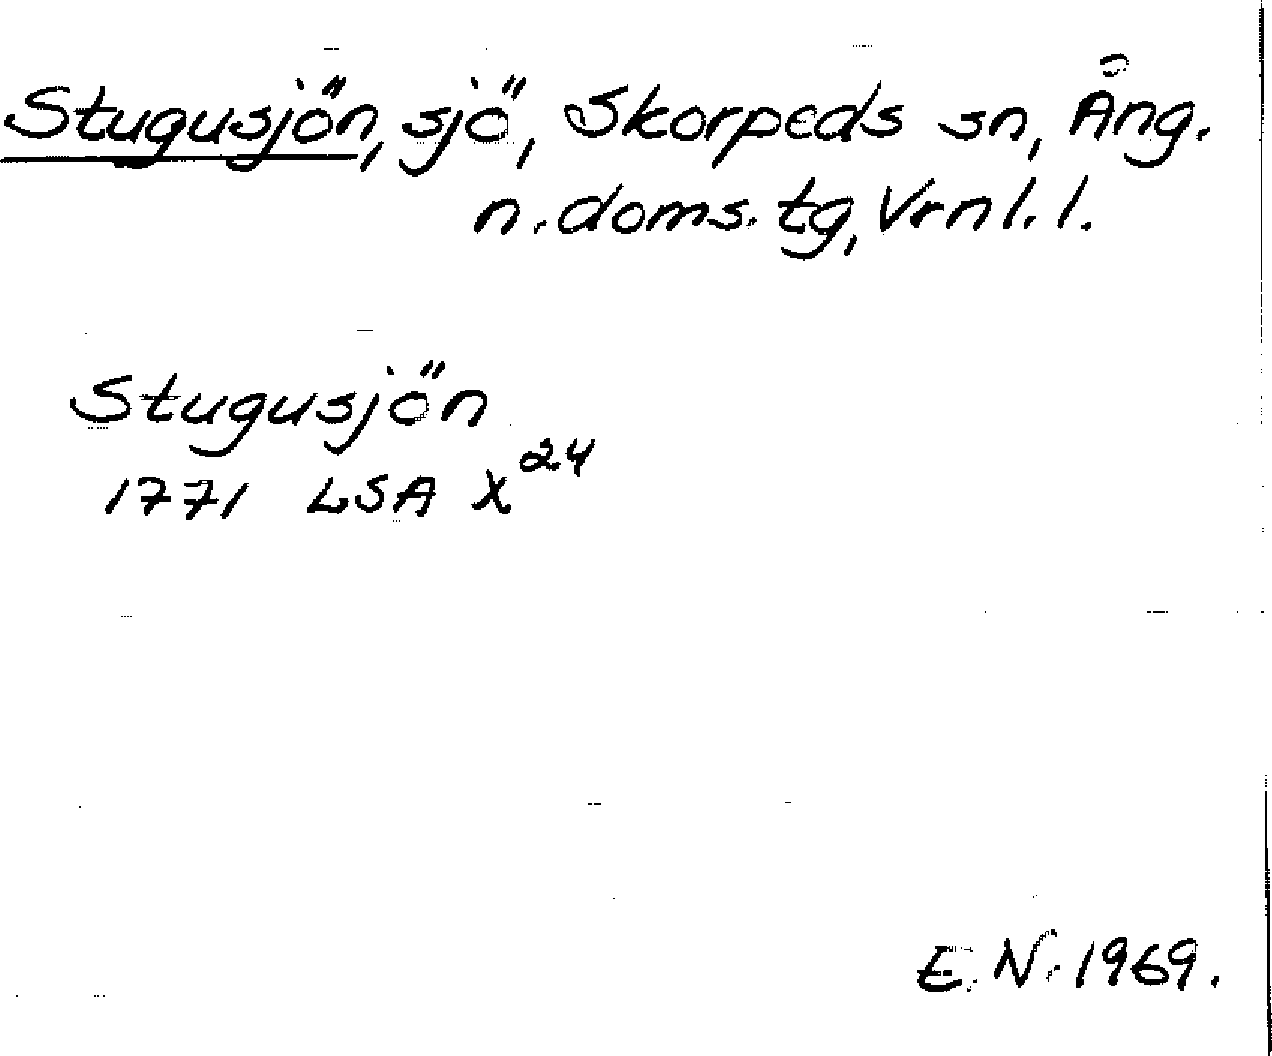 Stugusjön, sjö, Skorpeds sn, Ång.
n. doms. tg, Vrnl. l.
Stugusjön
1771 LSA X²⁴
E. N. 1969.